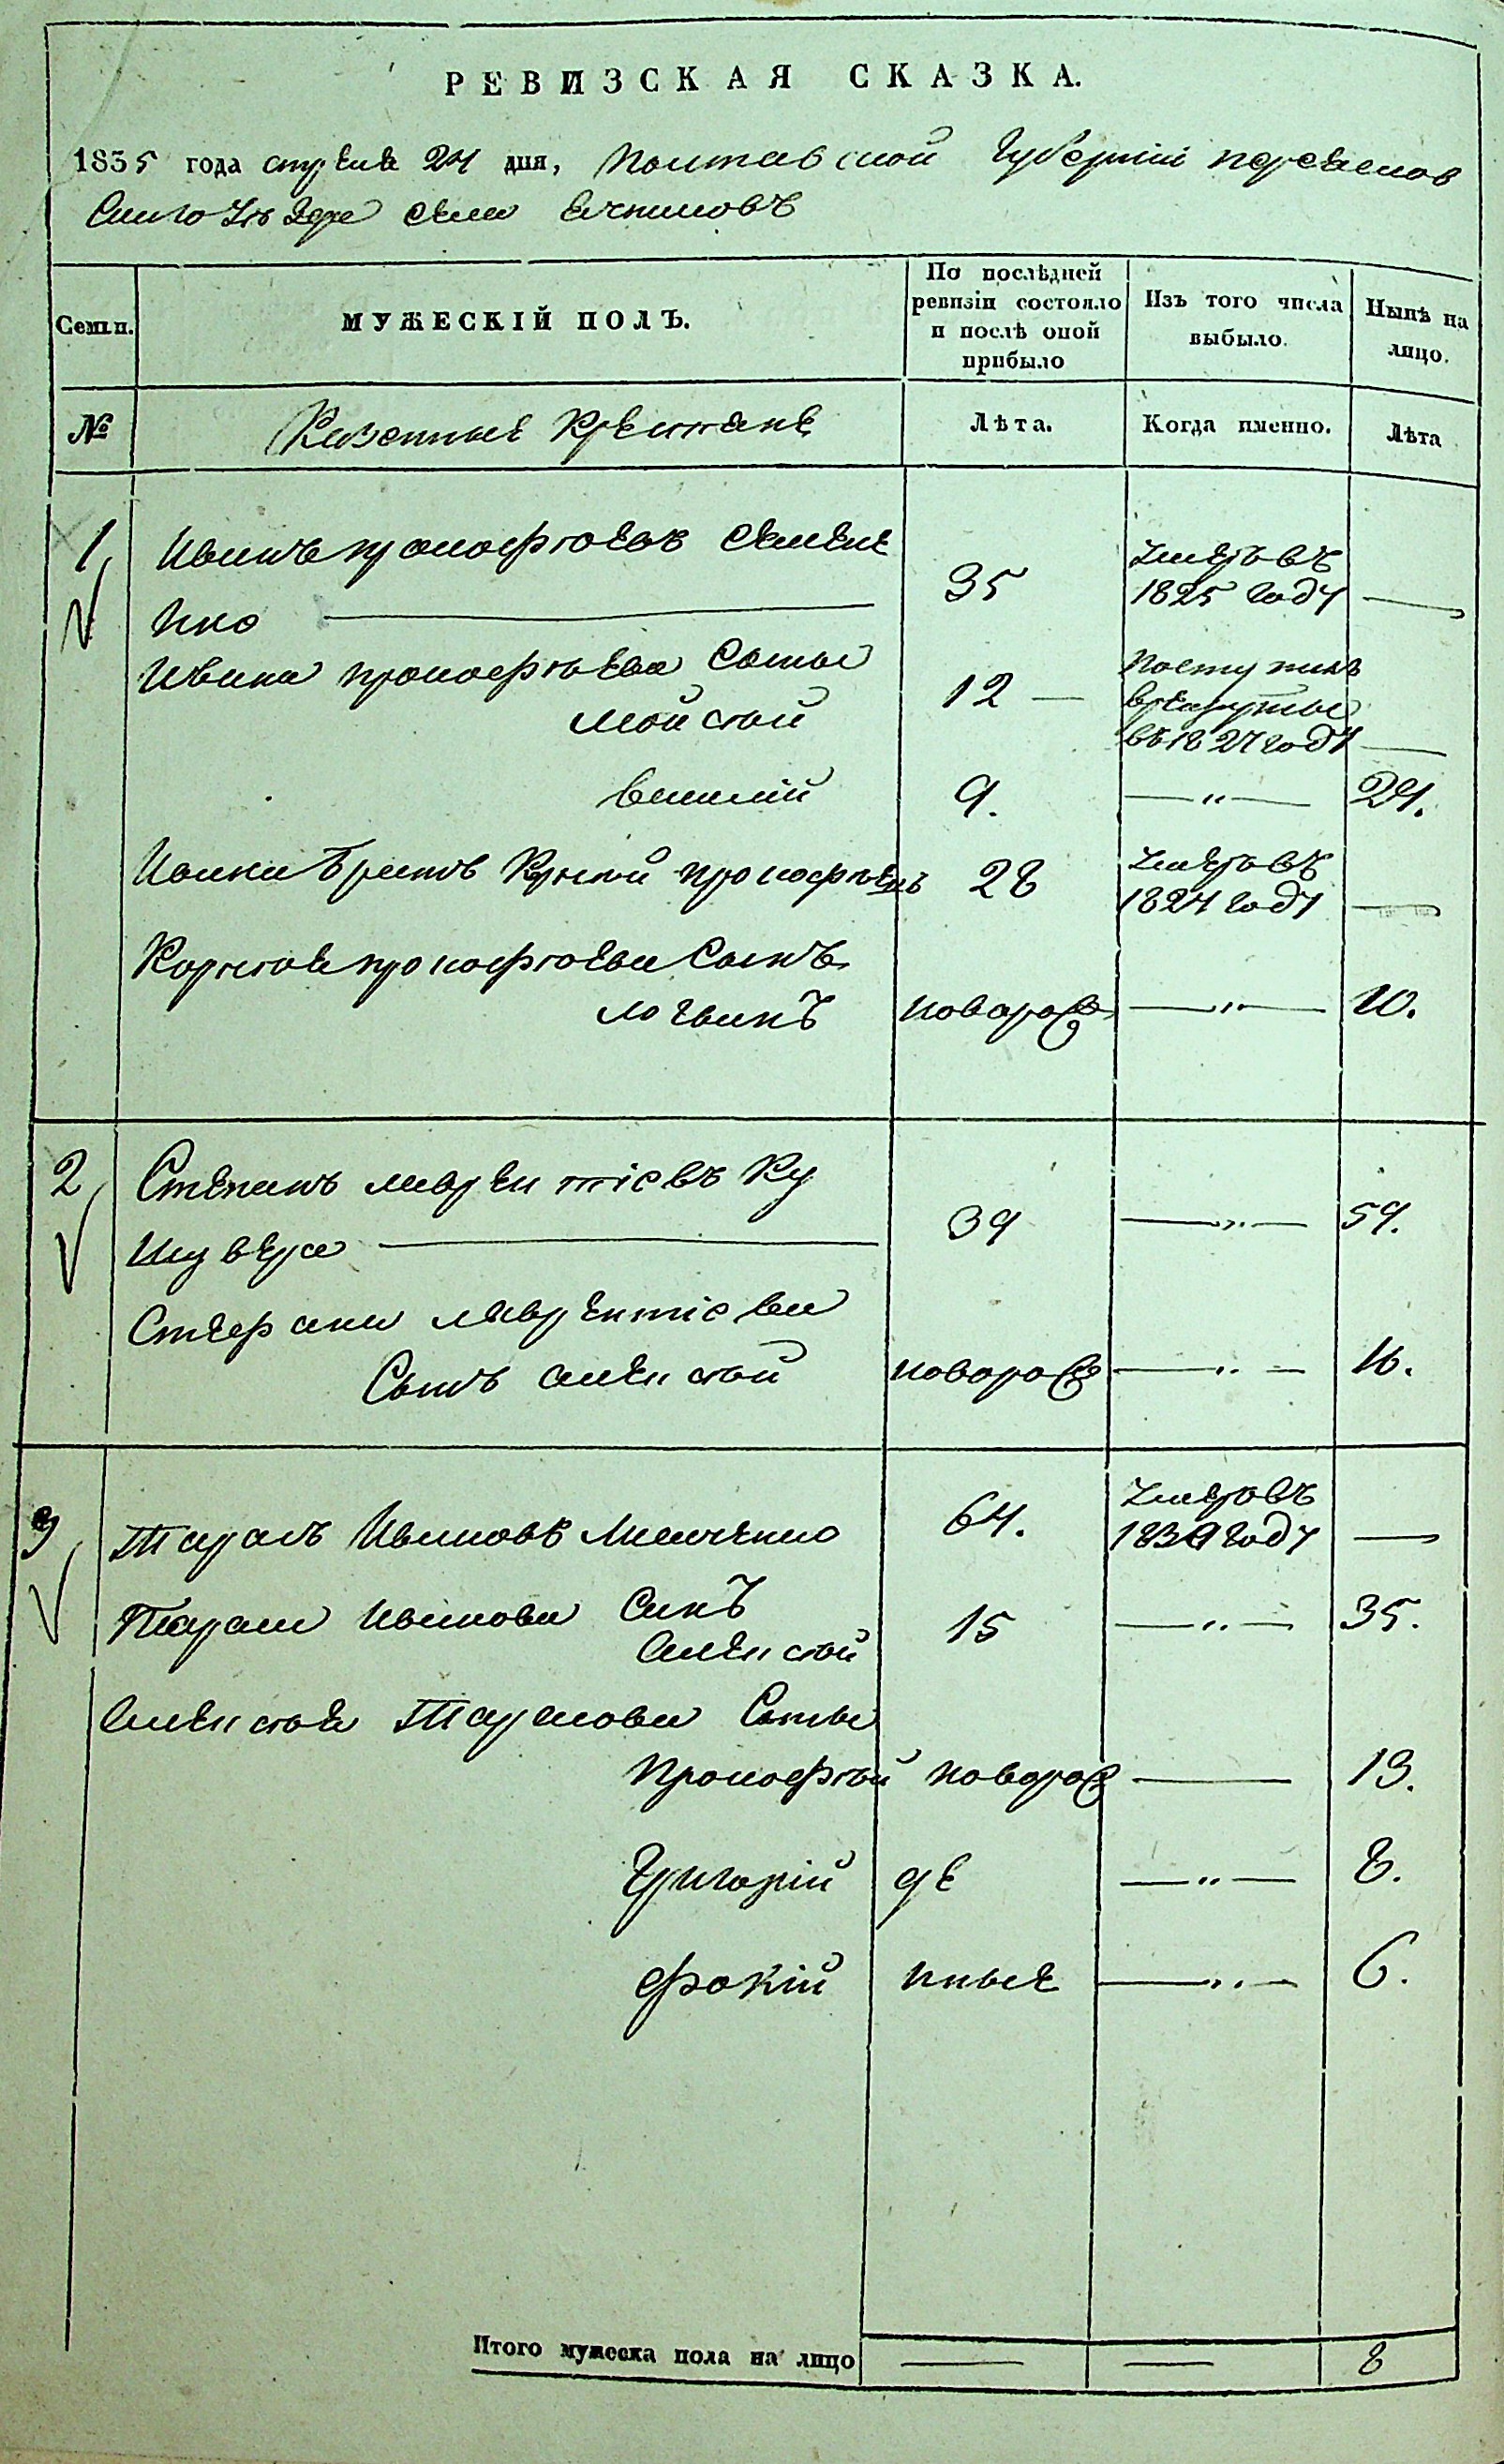 РЕВИЗСКАЯ СКАЗКА.
1835 года апреля 24 дня, Полтавской Губернии переяслов
скаго уезда села
Семьи. МУЖЕСКІЙ ПОЛЪ. По послѣдней ревизіи состояло и послѣ оной прибыло Изъ того числа выбыло. Нынѣ на лицо.
№ Казенные крестяне Лѣта. Когда именно. Лѣта
1 Иванъ прокофіевъ Семене
нко 35 умеръ въ 1825 году
Ивана прокофіева Сыны
мойсей 12 поступилъ в рекруты въ 1827 году
василій 9. — " — 24.
Ивана братъ прокофіевъ 28 умеръ въ 1824 году
прокофіева Сынъ
логвинъ новорож — " — 10.
2 Степанъ лаврентіевъ Ку
шувера 39 — " — 59.
Стефана лаврентіева
Сынъ алексей новорож — " — 16.
3 Тарасъ Ивановъ 64. умеръ въ 1830 году
Тараса Иванова Сынъ
Алексей 15 — " — 35.
Алексея Тарасова Сыны
прокофей новорож — 13.
Григорій де — " — 8.
фокій нные — " — 6.
Итого мужеска пола на лицо — — 8